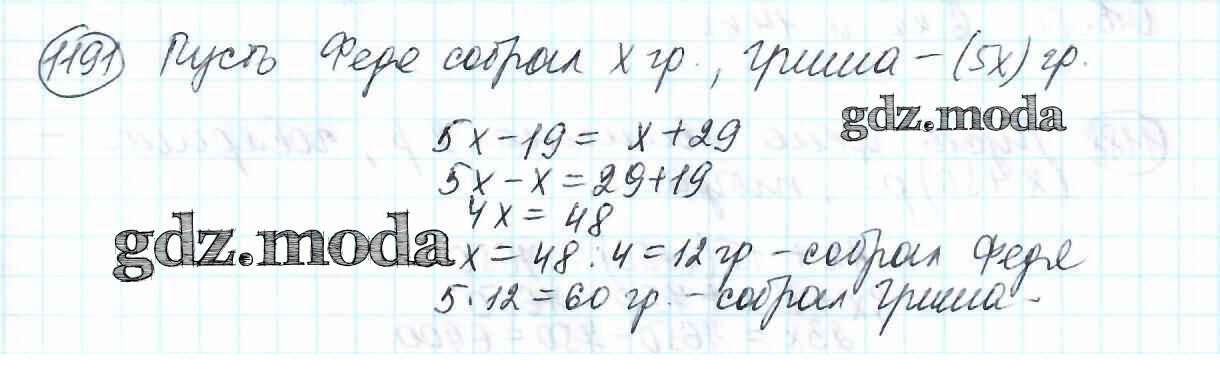 1191 Пусть Федя собрал x гр., Гриша – (5x) гр.
gdz.moda
5x – 19 = x + 29
5x – x = 29 + 19
4x = 48
gdz.moda
x = 48 : 4 = 12 гр – собрал Федя
5 · 12 = 60 гр. – собрал Гриша –